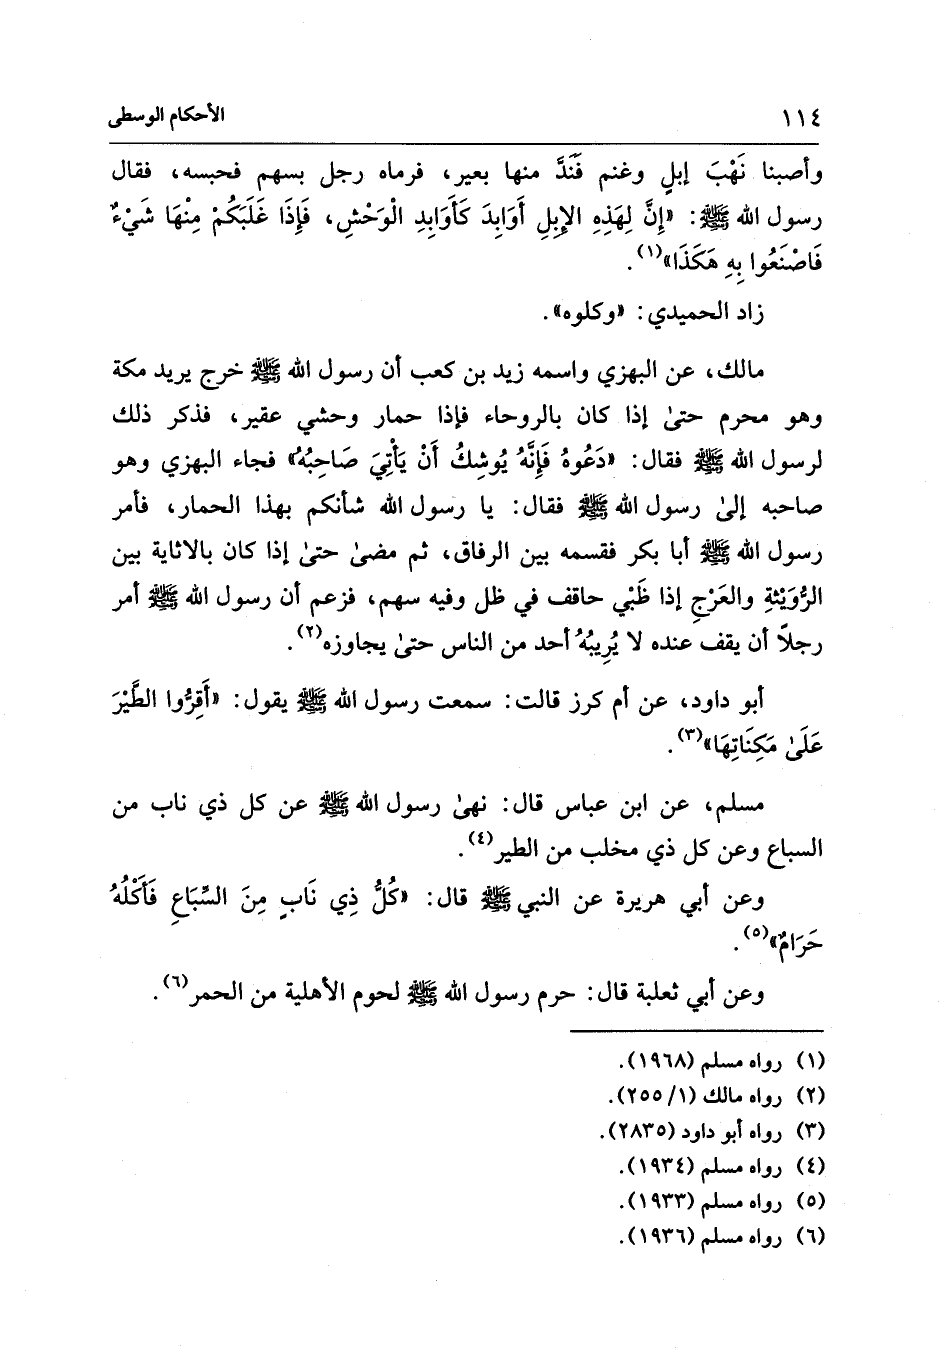 ١١٤ الأحكام الوسطى
وأصبنا نَهْبَ إبلٍ وغنم فَنَدَّ منها بعير، فرماه رجل بسهم فحبسه، فقال
رسول الله ﷺ: «إِنَّ لِهَذِهِ الإِبِلِ أَوَابِدَ كَأَوَابِدِ الْوَحْشِ، فَإِذَا غَلَبَكُمْ مِنْهَا شَيْءٌ
فَاصْنَعُوا بِهِ هَكَذَا»(١).
زاد الحميدي: «وكلوه».
مالك، عن البهزي واسمه زيد بن كعب أن رسول الله ﷺ خرج يريد مكة
وهو محرم حتىٰ إذا كان بالروحاء فإذا حمار وحشي عقير، فذكر ذلك
لرسول الله ﷺ فقال: «دَعُوهُ فَإِنَّهُ يُوشِكُ أَنْ يَأْتِيَ صَاحِبُهُ» فجاء البهزي وهو
صاحبه إلىٰ رسول الله ﷺ فقال: يا رسول الله شأنكم بهذا الحمار، فأمر
رسول الله ﷺ أبا بكر فقسمه بين الرفاق، ثم مضىٰ حتىٰ إذا كان بالاثاية بين
الرُّوَيْثةِ والعَرْجِ إذا ظَبْي حاقف في ظل وفيه سهم، فزعم أن رسول الله ﷺ أمر
رجلاً أن يقف عنده لا يُرِيبُهُ أحد من الناس حتىٰ يجاوزه(٢).
أبو داود، عن أم كرز قالت: سمعت رسول الله ﷺ يقول: «أَقِرُّوا الطَّيْرَ
عَلَىٰ مَكِنَاتِهَا»(٣).
مسلم، عن ابن عباس قال: نهىٰ رسول الله ﷺ عن كل ذي ناب من
السباع وعن كل ذي مخلب من الطير(٤).
وعن أبي هريرة عن النبي ﷺ قال: «كُلُّ ذِي نَابٍ مِنَ السِّبَاعِ فَأَكْلُهُ
حَرَامٌ»(٥).
وعن أبي ثعلبة قال: حرم رسول الله ﷺ لحوم الأهلية من الحمر(٦).
(١) رواه مسلم (١٩٦٨).
(٢) رواه مالك (١/ ٢٥٥).
(٣) رواه أبو داود (٢٨٣٥).
(٤) رواه مسلم (١٩٣٤).
(٥) رواه مسلم (١٩٣٣).
(٦) رواه مسلم (١٩٣٦).